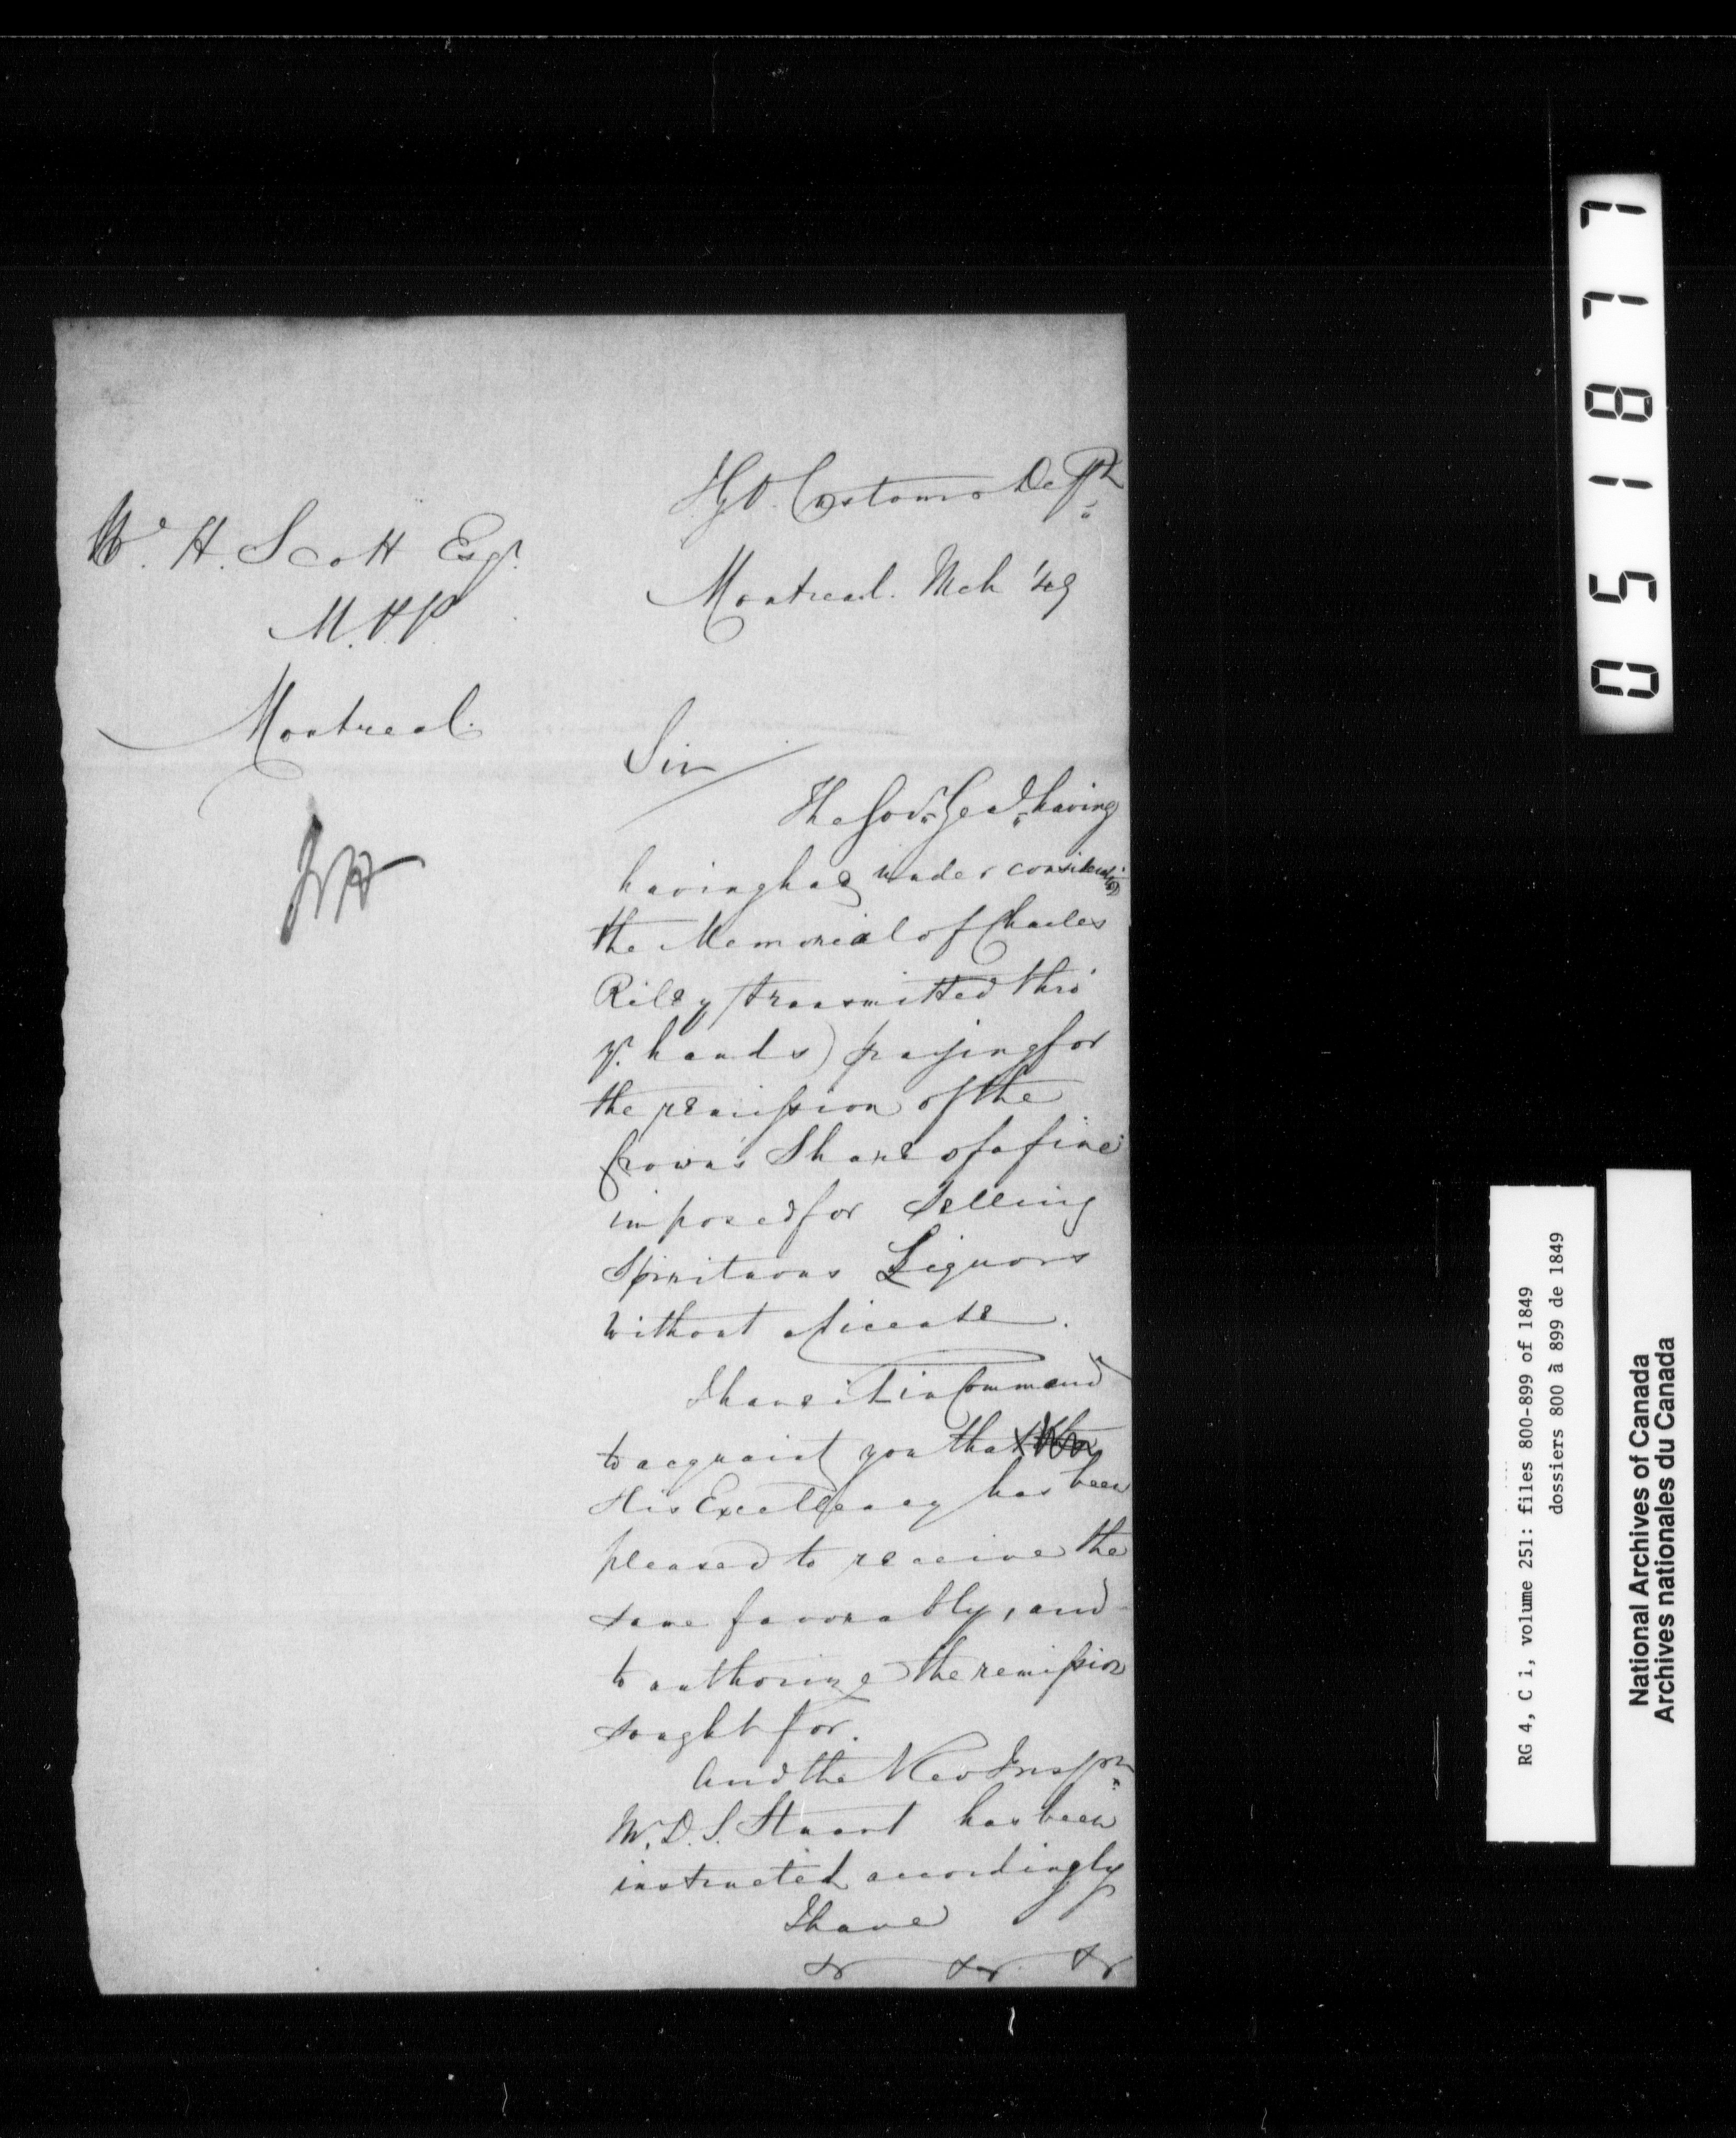 W. H. Scott Esqr.
M.P.P.
Montreal.
Customs Dept.
Montreal. Mch '49
Sir
The Govr. Genl. having
having had under consideration
the Memorial of Charles
Riley (transmitted thro'
yr. hands) praying for
the remission of the
Crown's Share of a fine
imposed for Selling
Spirituous Liquors
without a licease.
I have it in Command
to acquaint you that
His Excellency has been
pleased to receive the
same favorably, and
to authorize the remission
sought for.
And the Rev Inspr.
Mr. D. S. Stuart has been
instructed accordingly
I have
&c &c. &c
051877
RG 4, C 1, volume 251: files 800-899 of 1849
dossiers 800 à 899 de 1849
National Archives of Canada
Archives nationales du Canada